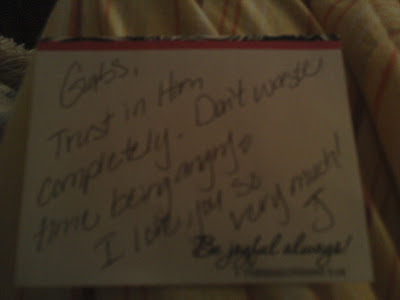 Gubs,
Trust in Him
completely. Don't waste
time being angry,
I love you so
very much!
J
Be joyful always!